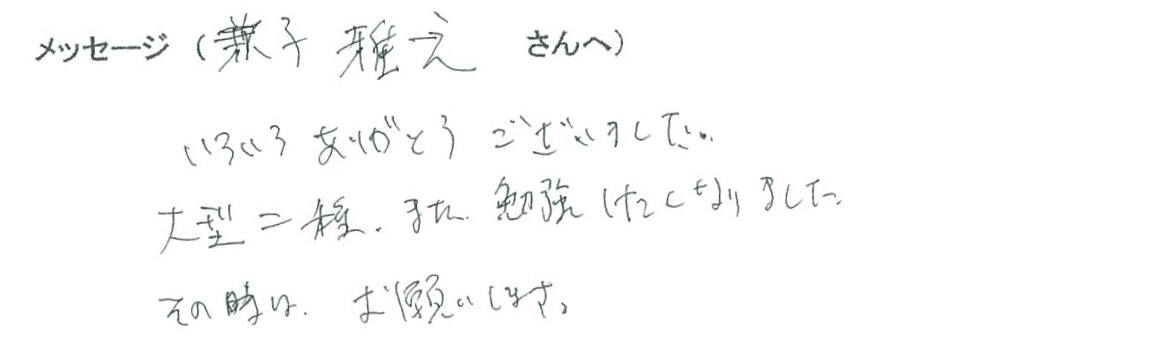 メッセージ（兼子 雅之 さんへ）
いろいろ ありがとう ございました。
大型二種、また 勉強したくなりました
その時は、お願いします。